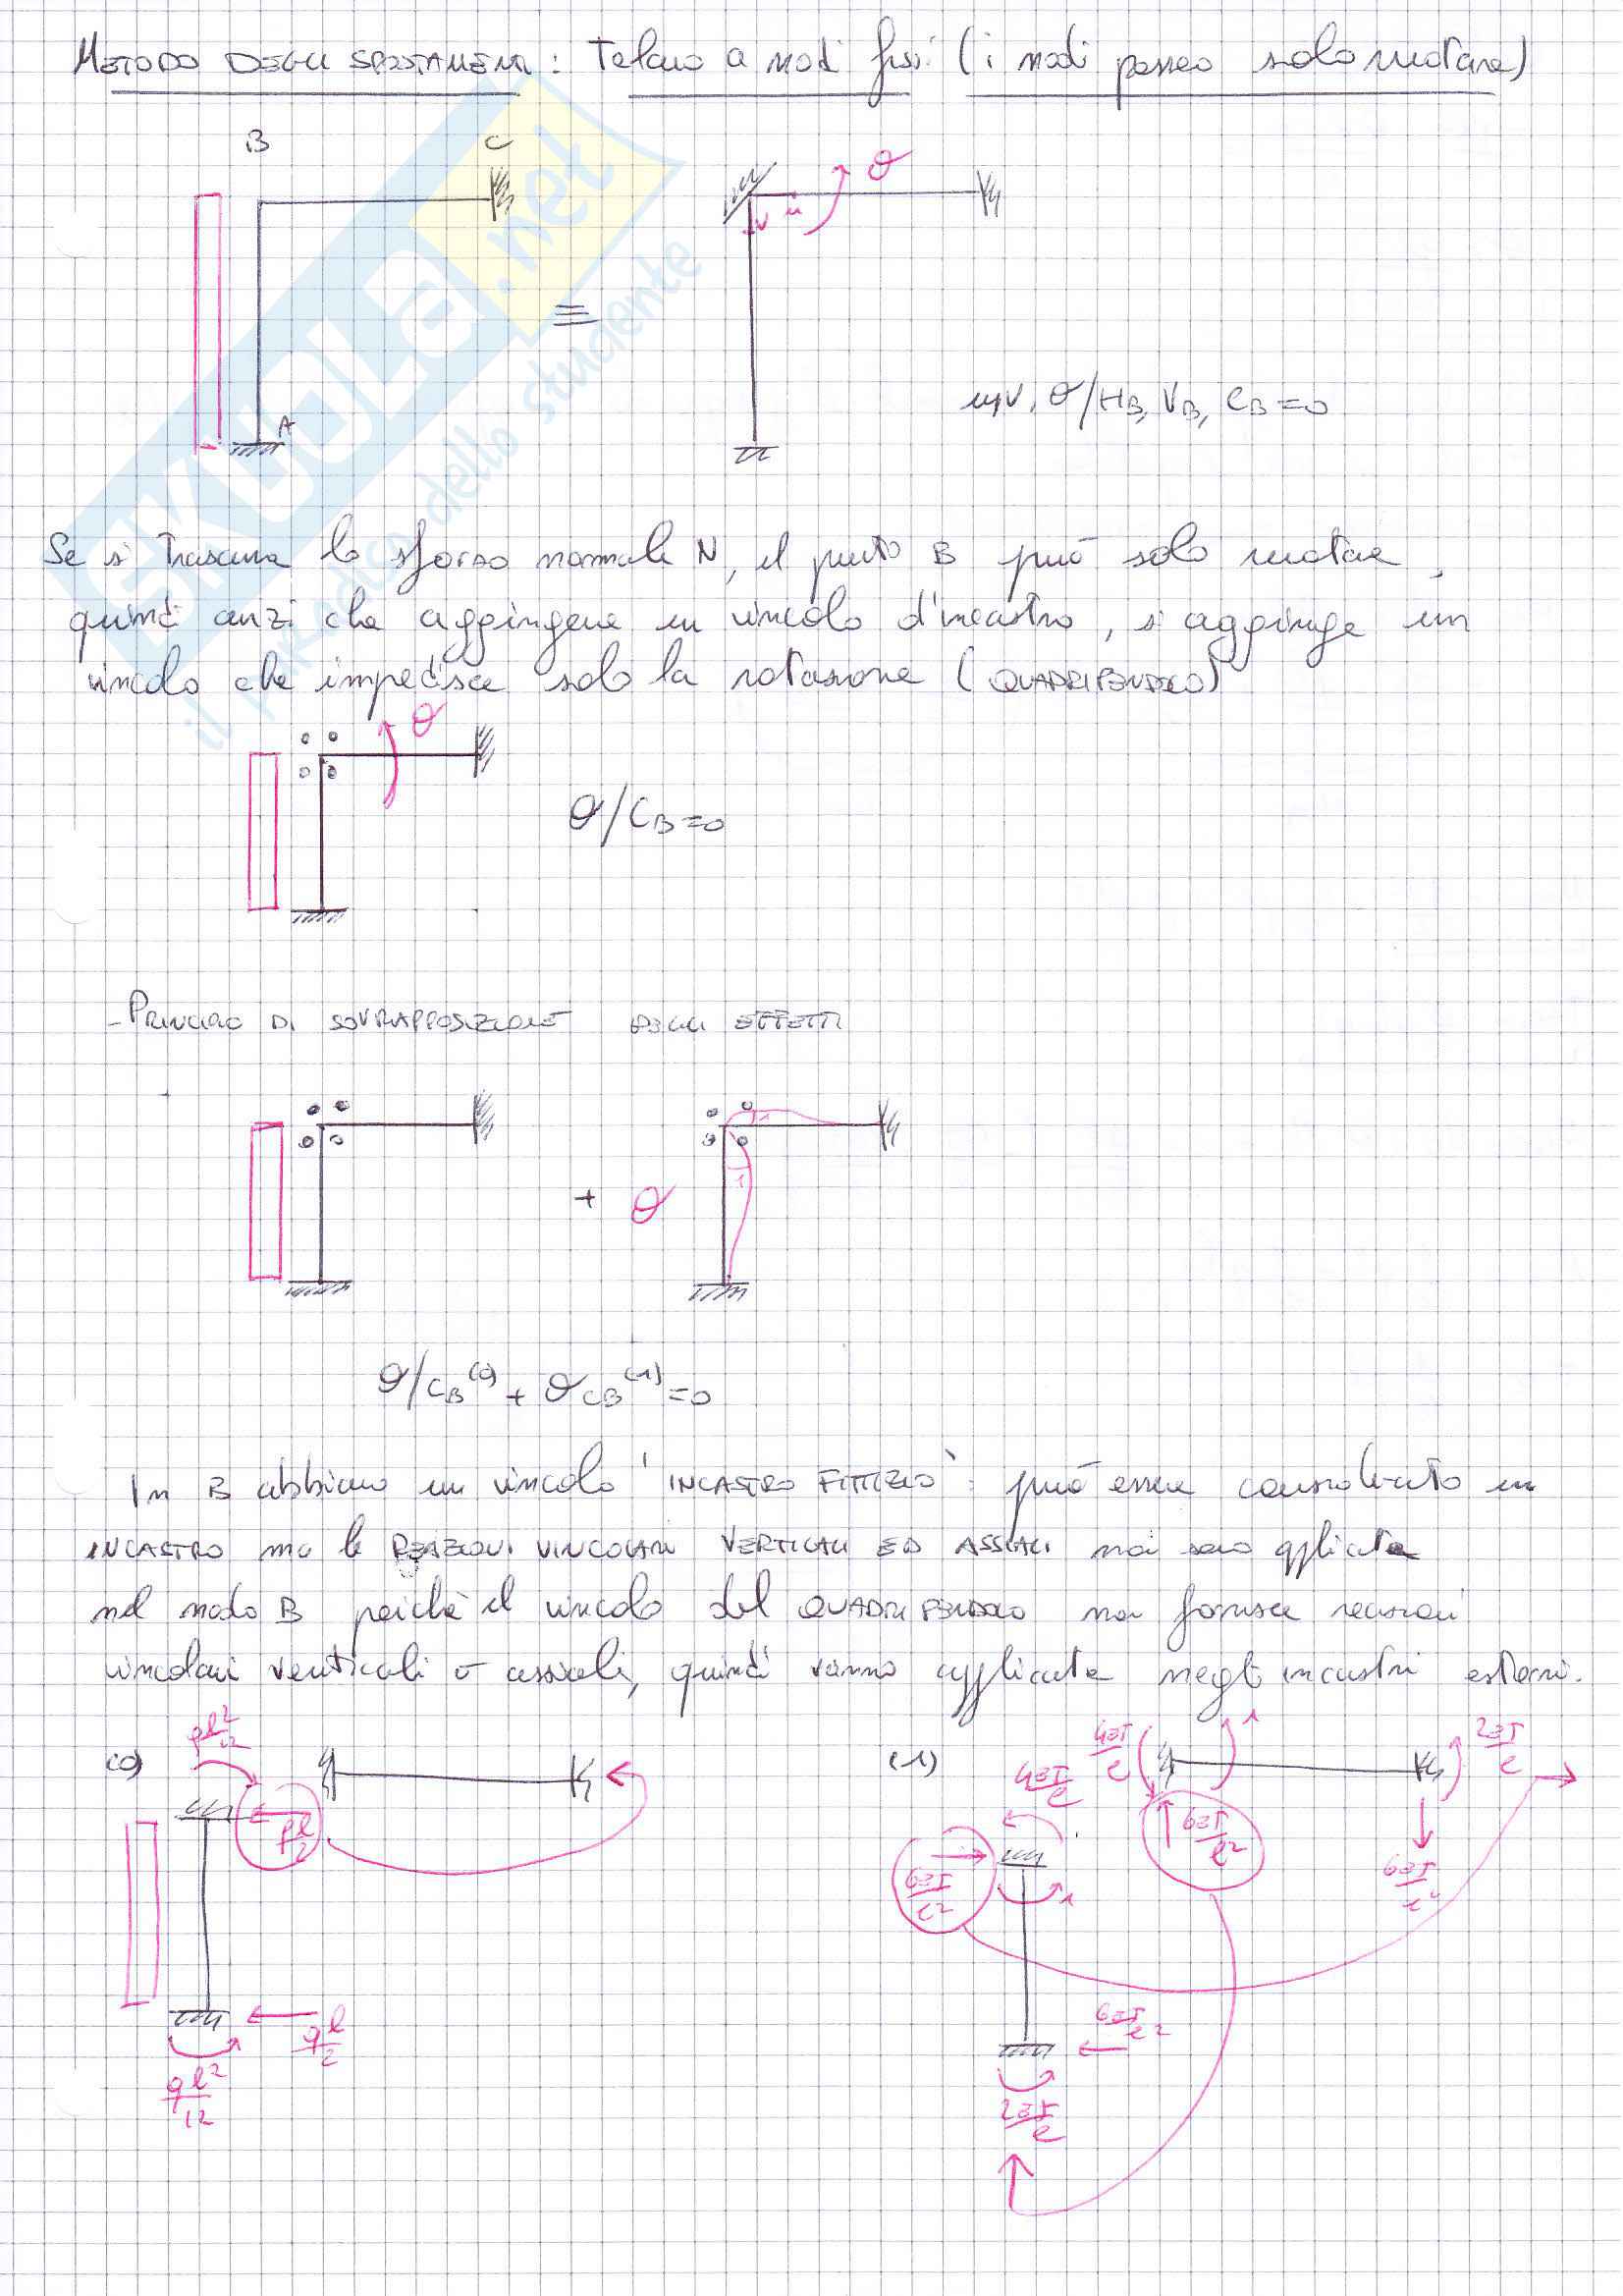 METODO DEGLI SPOSTAMENTI: Telaio a nodi fissi (i nodi possono solo ruotare)
B C
θ
v u
A
u, v, θ/H_B, V_B, C_B=0
Se si trascura lo sforzo normale N, il punto B può solo ruotare,
quindi anzi che aggiungere un vincolo d'incastro, si aggiunge un
vincolo che impedisce solo la rotazione (QUADRIPENDOLO)
θ
θ/C_B=0
- PRINCIPIO DI SOVRAPPOSIZIONE DEGLI EFFETTI
1
+ θ
1
θ/C_B^(0) + θ C_B^(1) =0
In B abbiamo un vincolo 'INCASTRO FITTIZIO': può essere considerato un
INCASTRO ma le REAZIONI VINCOLARI VERTICALI ED ASSIALI non sono applicate
nel nodo B poichè il vincolo del QUADRIPENDOLO non fornisce reazioni
vincolari verticali o assiali, quindi vanno applicate negli incastri esterni.
(0) ql²/12
ql/2
ql/2
ql²/12
(1) 4EI/l 4EI/l 1 2EI/l
6EI/l² 1 6EI/l² 6EI/l²
6EI/l²
2EI/l
SKUOLA.net
il paradiso dello studente